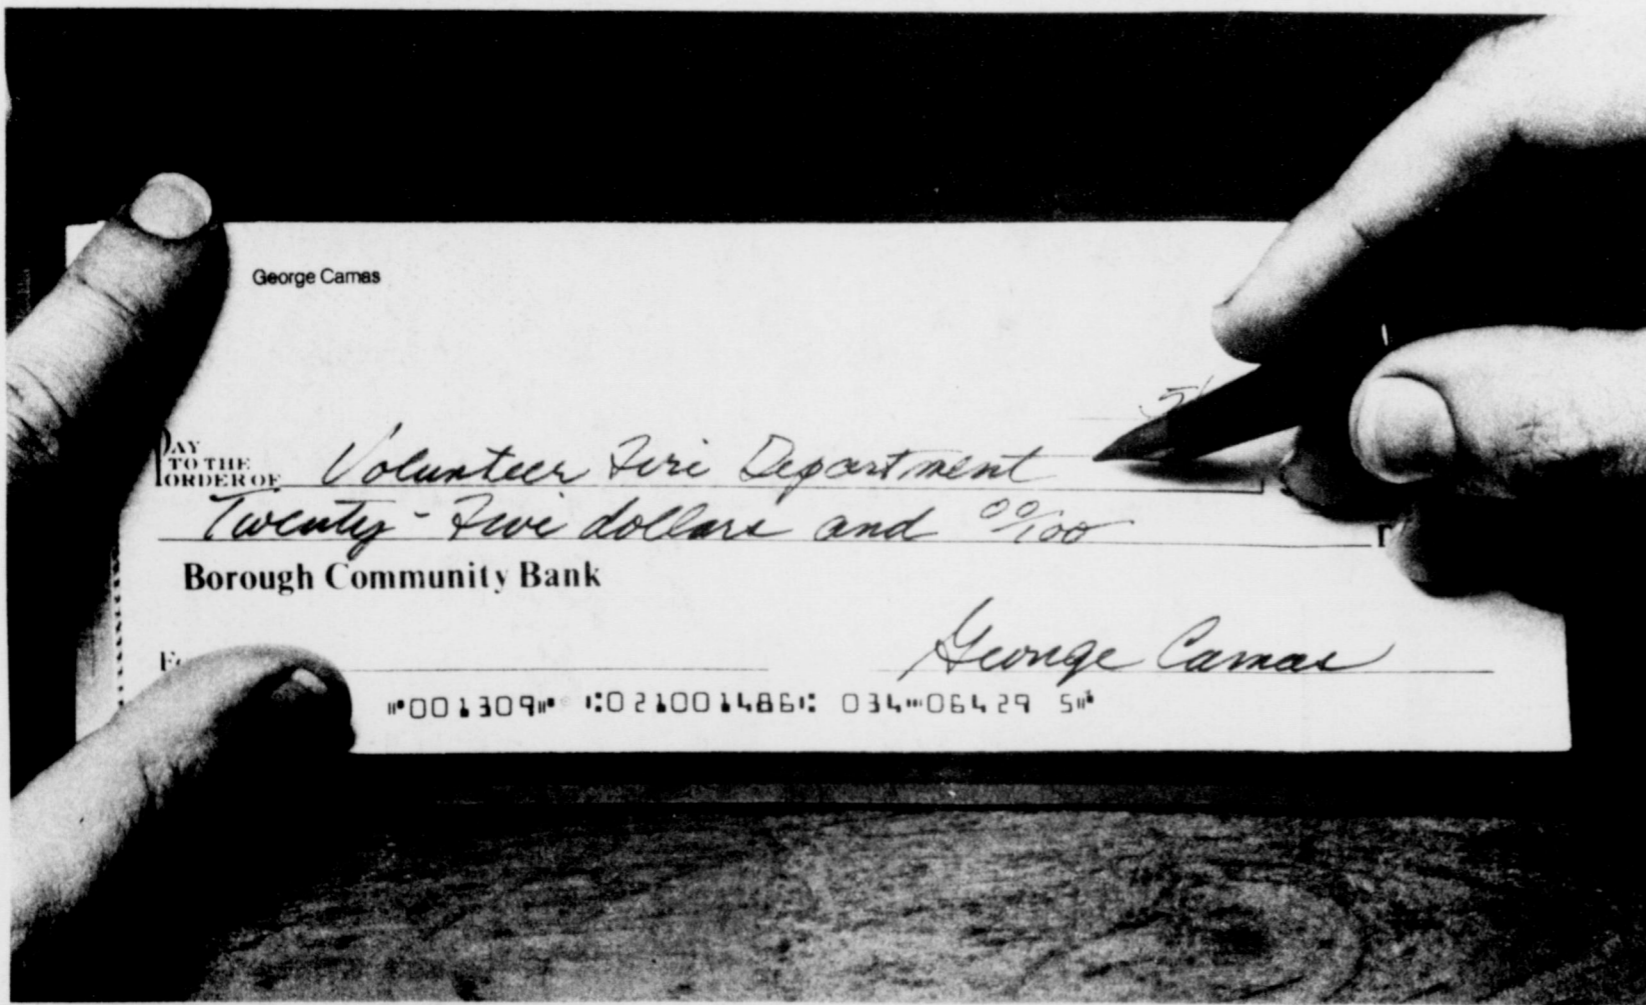 George Camas
PAY
TO THE
ORDER OF Volunteer Fire Department
Twenty-Five dollars and 00/100
Borough Community Bank
George Camas
⑈001309⑈ ⑆021001486⑆ 034⑉06429 5⑈